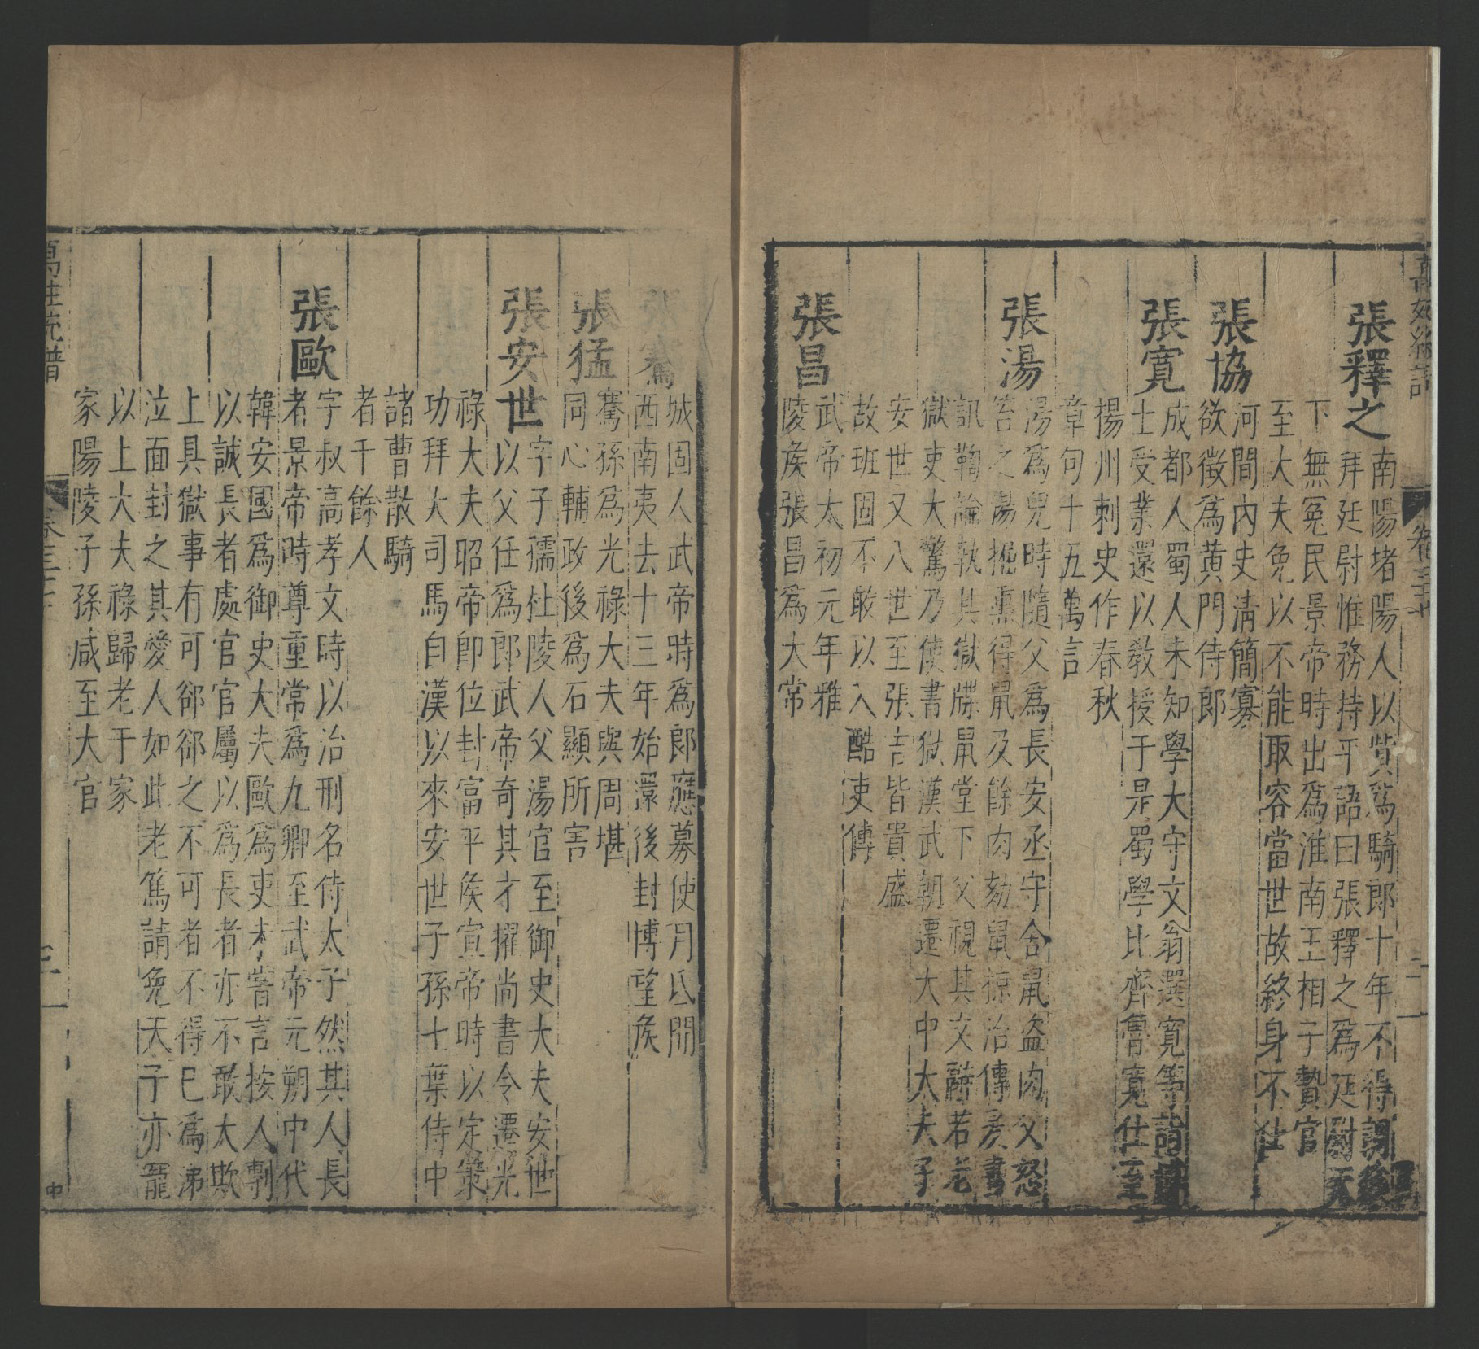 張釋之
南陽堵陽人以貲爲騎郎十年不得調後
拜廷尉惟務持平語曰張釋之爲廷尉天
下無冤民景帝時出爲淮南王相子贄官
至大夫免以不能取容當世故終身不仕
張協
河間內史清簡寡
欲徵爲黃門侍郎
張寬
成都人蜀人未知學大守文翁選寬等詣
士受業還以教授于是蜀學比齊魯寬仕至
揚州刺史作春秋
章句十五萬言
張湯
湯爲兒時隨父爲長安丞守舍鼠盜肉父怒
笞之湯掘熏得鼠及餘肉劾鼠掠治傳爰書
訊鞫論執其獄牒鼠堂下父視其文辭若老
獄吏大驚乃使書獄漢武朝遷大中大夫子
安世又八世至張吉皆貴盛
故班固不敢以入酷吏傳
張昌
武帝太初元年雅
陵矦張昌爲大常
張騫
城固人武帝時爲郎應募使月氏開
西南夷去十三年始還後封博望矦
張猛
騫孫爲光祿大夫與周堪
同心輔政後爲石顯所害
張安世
字子孺杜陵人父湯官至御史大夫安世
以父任爲郎武帝奇其才擢尚書令遷光
祿大夫昭帝即位封富平矦宣帝時以定策
功拜大司馬自漢以來安世子孫七葉侍中
諸曹散騎
者千餘人
張歐
字叔高孝文時以治刑名侍太子然其人長
者景帝時尊重常爲九卿至武帝元朔中代
韓安國爲御史大夫歐爲吏未嘗言按人剸
以誠長者處官官屬以爲長者亦不敢大欺
上具獄事有可郤郤之不可者不得已爲涕
泣面封之其愛人如此老篤請免天子亦寵
以上大夫祿歸老于家
家陽陵子孫咸至大官
萬姓統譜
卷三十
三
中